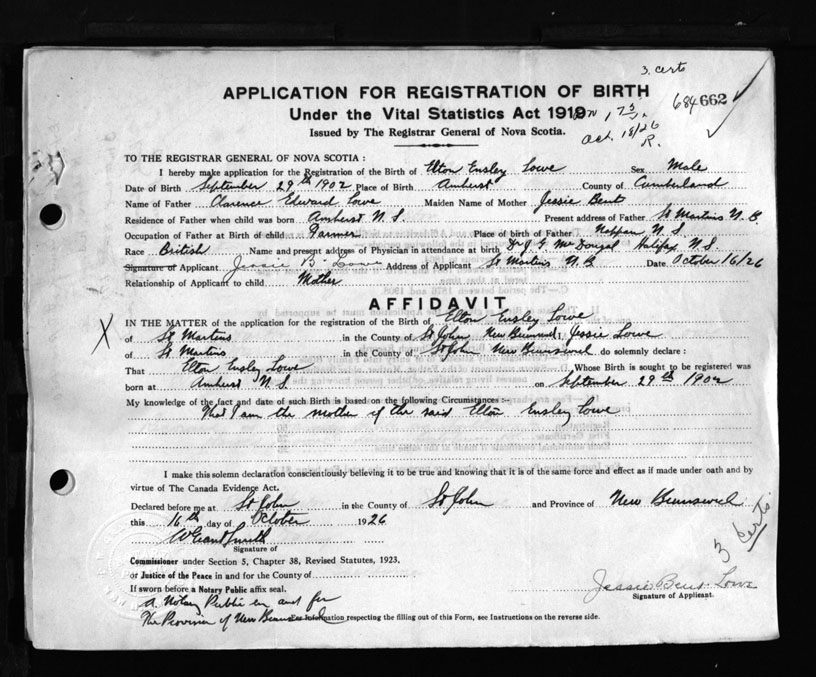 3. certs
APPLICATION FOR REGISTRATION OF BIRTH
684662
Under the Vital Statistics Act 1919
Issued by The Registrar General of Nova Scotia.
Oct. 18/26
R.
TO THE REGISTRAR GENERAL OF NOVA SCOTIA :
I hereby make application for the Registration of the Birth of Elton Ensley Lowe Sex Male
Date of Birth September 29th 1902 Place of Birth Amherst County of Cumberland
Name of Father Clarence Edward Lowe Maiden Name of Mother Jessie Bent
Residence of Father when child was born Amherst N.S. Present address of Father St Martins N.B
Occupation of Father at Birth of child Farmer Place of birth of Father Nappan N.S.
Race British Name and present address of Physician in attendance at birth Dr J. G. McDougal Halifax N.S.
Signature of Applicant Jessie B. Lowe Address of Applicant St Martins N.B Date October 16/26
Relationship of Applicant to child Mother
AFFIDAVIT
IN THE MATTER of the application for the registration of the Birth of Elton Ensley Lowe
X of St Martins in the County of St John New Brunswick I Jessie Lowe
of St Martins in the County of St John New Brunswick do solemnly declare :
That Elton Ensley Lowe Whose Birth is sought to be registered was
born at Amherst N.S. on September 29th 1902
My knowledge of the fact and date of such Birth is based on the following Circumstances :-
That I am the mother of the said Elton Ensley Lowe
I make this solemn declaration conscientiously believing it to be true and knowing that it is of the same force and effect as if made under oath and by
virtue of The Canada Evidence Act.
Declared before me at St John in the County of St John and Province of New Brunswick
this 16th day of October 1926
Signature of
Commissioner under Section 5, Chapter 38, Revised Statutes, 1923.
or Justice of the Peace in and for the County of
3 certs
If sworn before a Notary Public affix seal.
Jessie Bent Lowe
Signature of Applicant.
A Notary Public in and for
The Province of New Brunswick
For Information respecting the filling out of this Form, see Instructions on the reverse side.